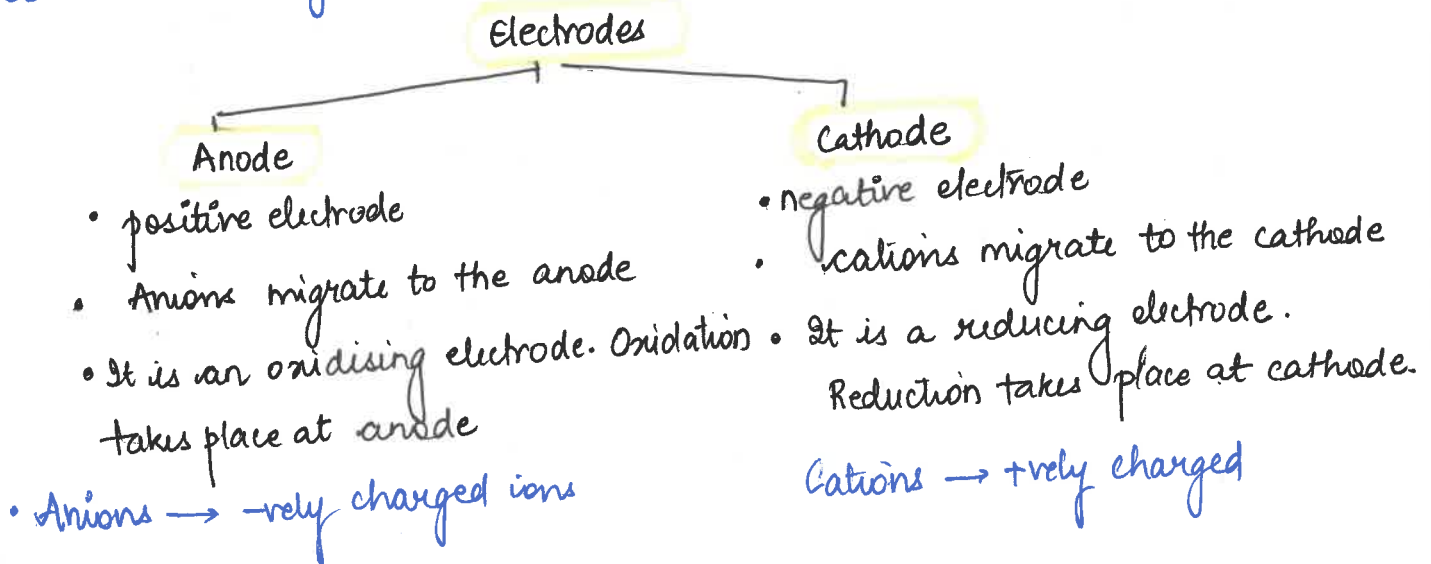 Electrodes
Anode
• positive electrode
• Anions migrate to the anode
• It is an oxidising electrode. Oxidation
takes place at anode
• Anions → -vely charged ions
Cathode
• negative electrode
• cations migrate to the cathode
• It is a reducing electrode.
Reduction takes place at cathode.
Cations → +vely charged